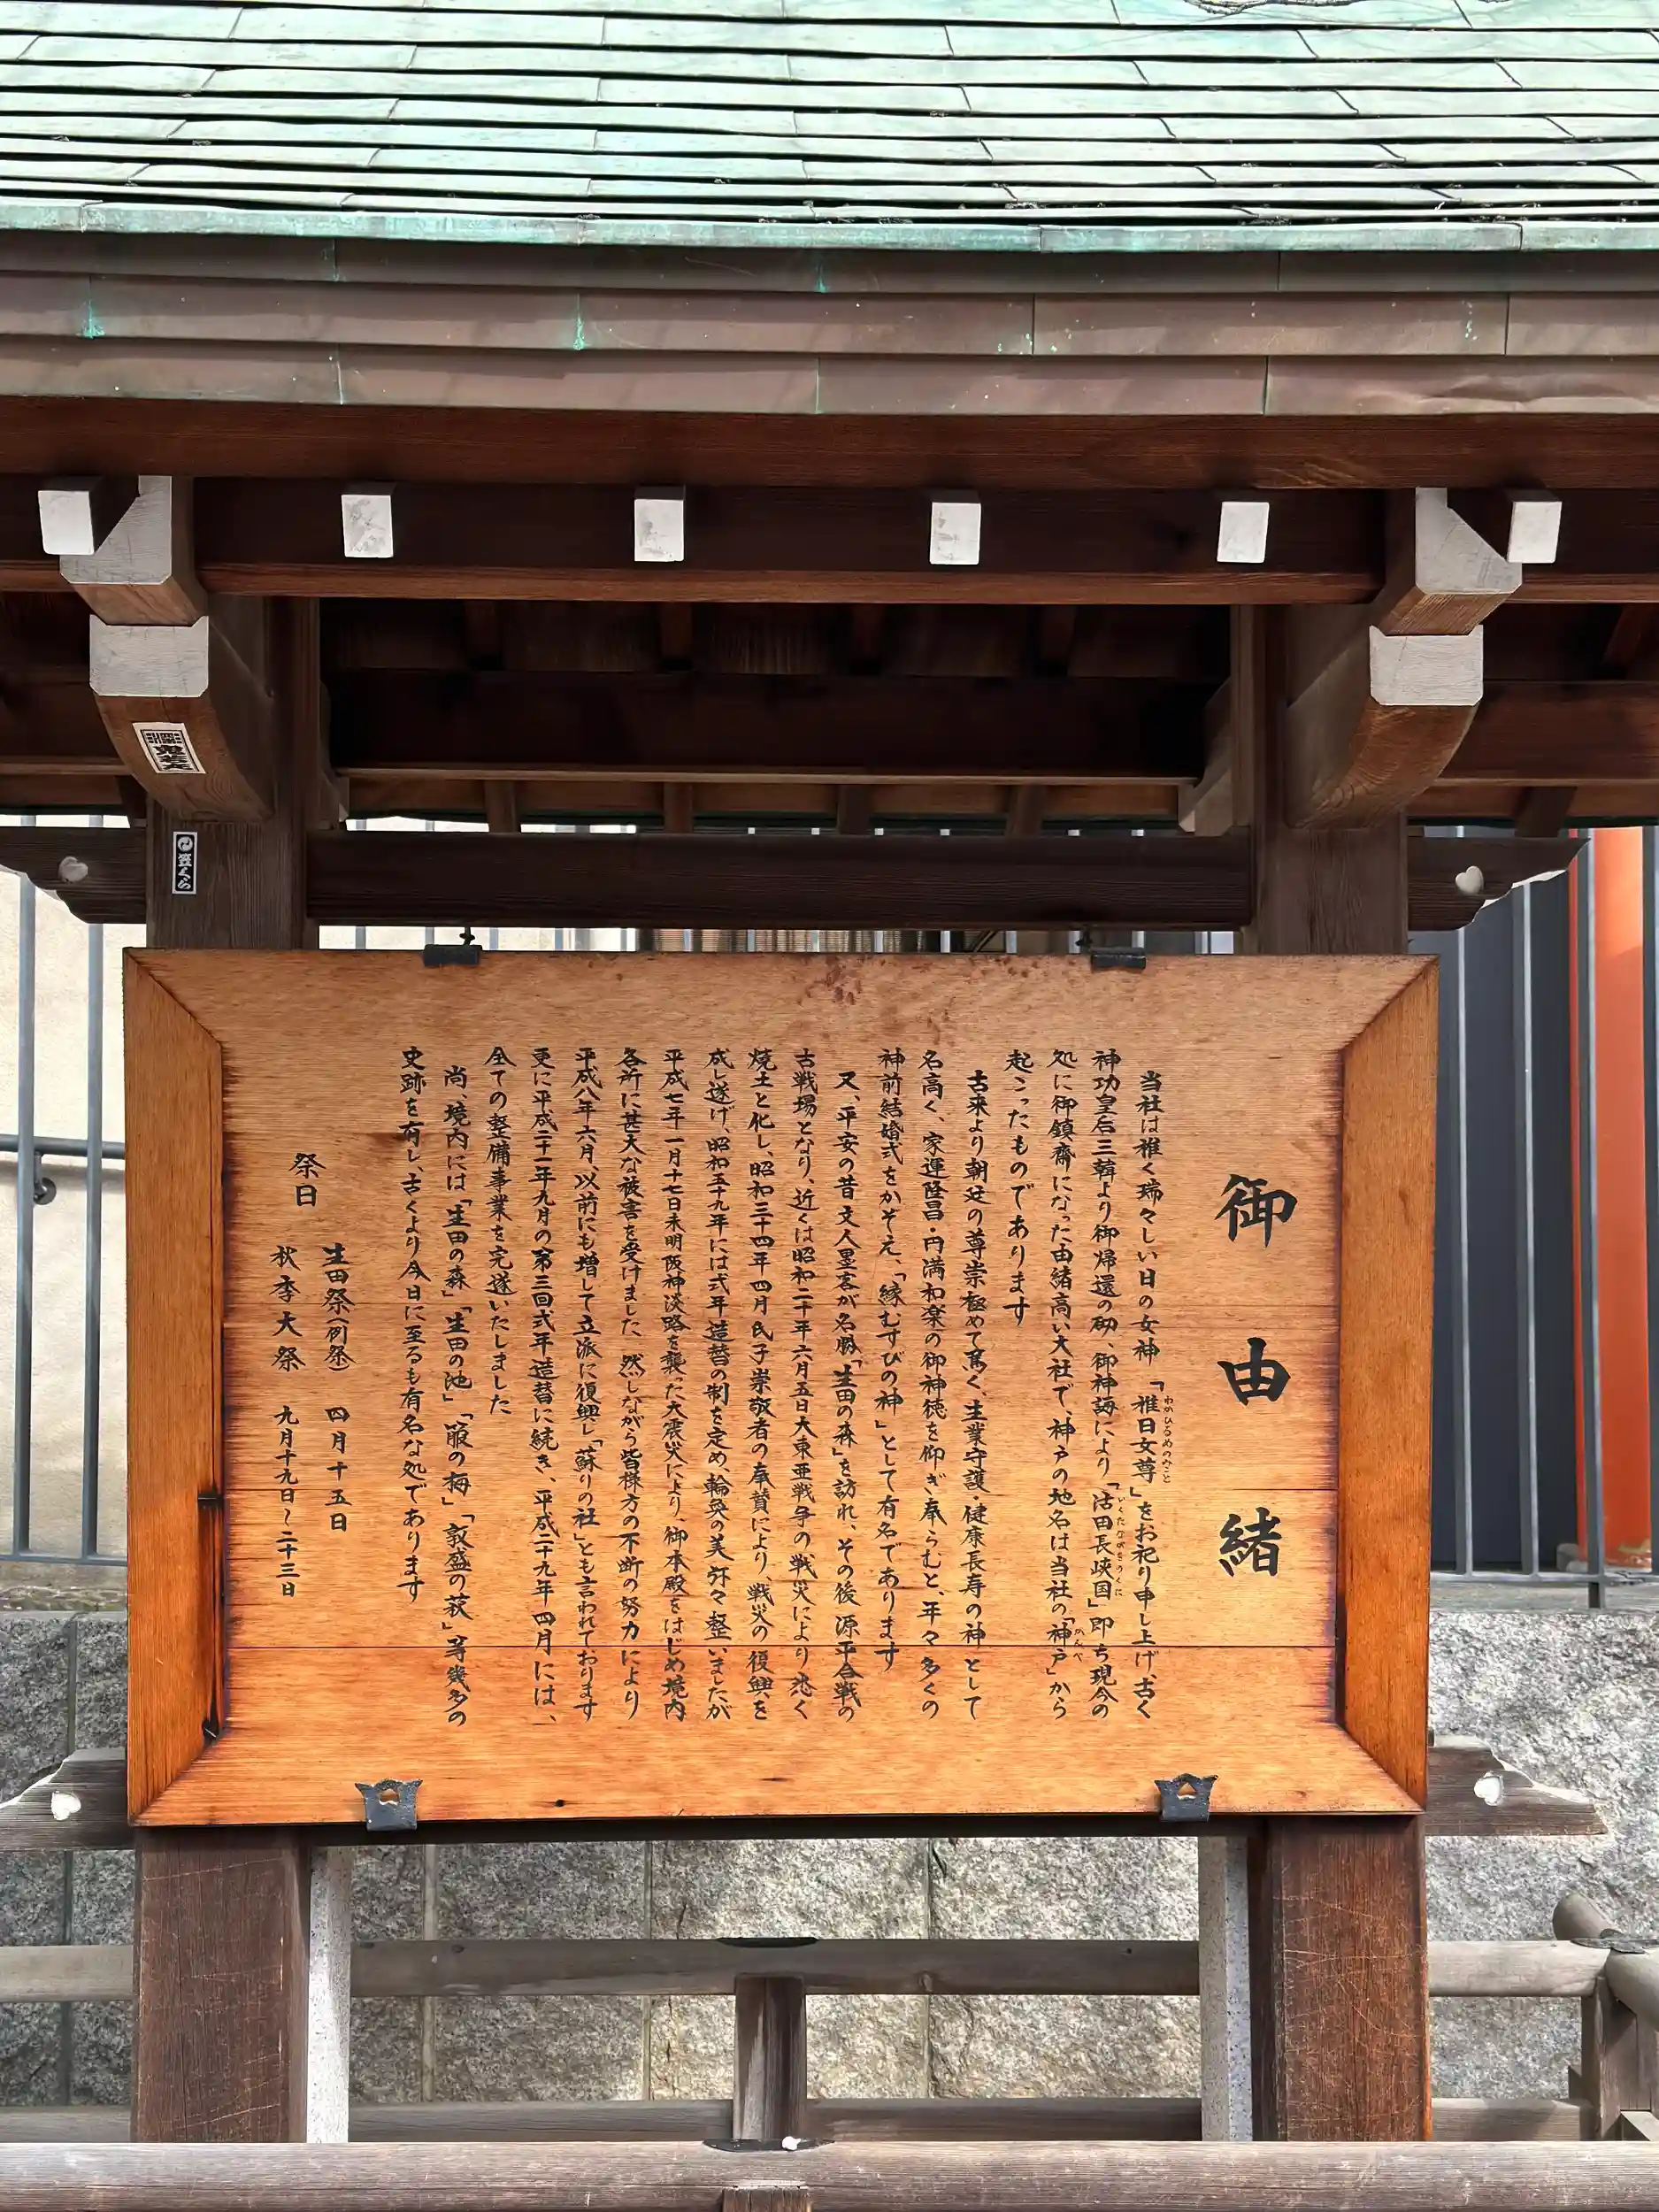 御由緒
当社は稚く瑞々しい日の女神「稚日女尊」をお祀り申し上げ、古く
わかひるめのみこと
神功皇后三韓より御帰還の砌、御神誨により「活田長峡国」即ち現今の
いくたながをのくに
処に御鎮齋になった由緒高い大社で、神戸の地名は当社の「神戸」から
かんべ
起こったものであります
古来より朝廷の尊崇極めて篤く、生業守護・健康長寿の神として
名高く、家運隆昌・円満和楽の御神徳を仰ぎ奉らむと、年々多くの
神前結婚式をかぞえ、「縁むすびの神」として有名であります
又、平安の昔文人墨客が名勝「生田の森」を訪れ、その後源平合戦の
古戦場となり、近くは昭和二十年六月五日大東亜戦争の戦災により悉く
焼土と化し、昭和三十四年四月氏子崇敬者の奉賛により、戦災の復興を
成し遂げ、昭和五十九年には式年造替の制を定め、輪奐の美弥々整いましたが
平成七年一月十七日未明阪神淡路を襲った大震災により、御本殿をはじめ境内
各所に甚大な被害を受けました 然しながら皆様方の不断の努力により
平成八年六月、以前にも増して立派に復興し「蘇りの社」とも言われております
更に平成二十一年九月の第三回式年造替に続き、平成二十九年四月には、
全ての整備事業を完遂いたしました
尚、境内には「生田の森」「生田の池」「箙の梅」「敦盛の萩」等幾多の
史跡を有し、古くより今日に至るも有名な処であります
祭日
生田祭(例祭) 四月十五日
秋季大祭 九月十九日~二十三日
笠くら